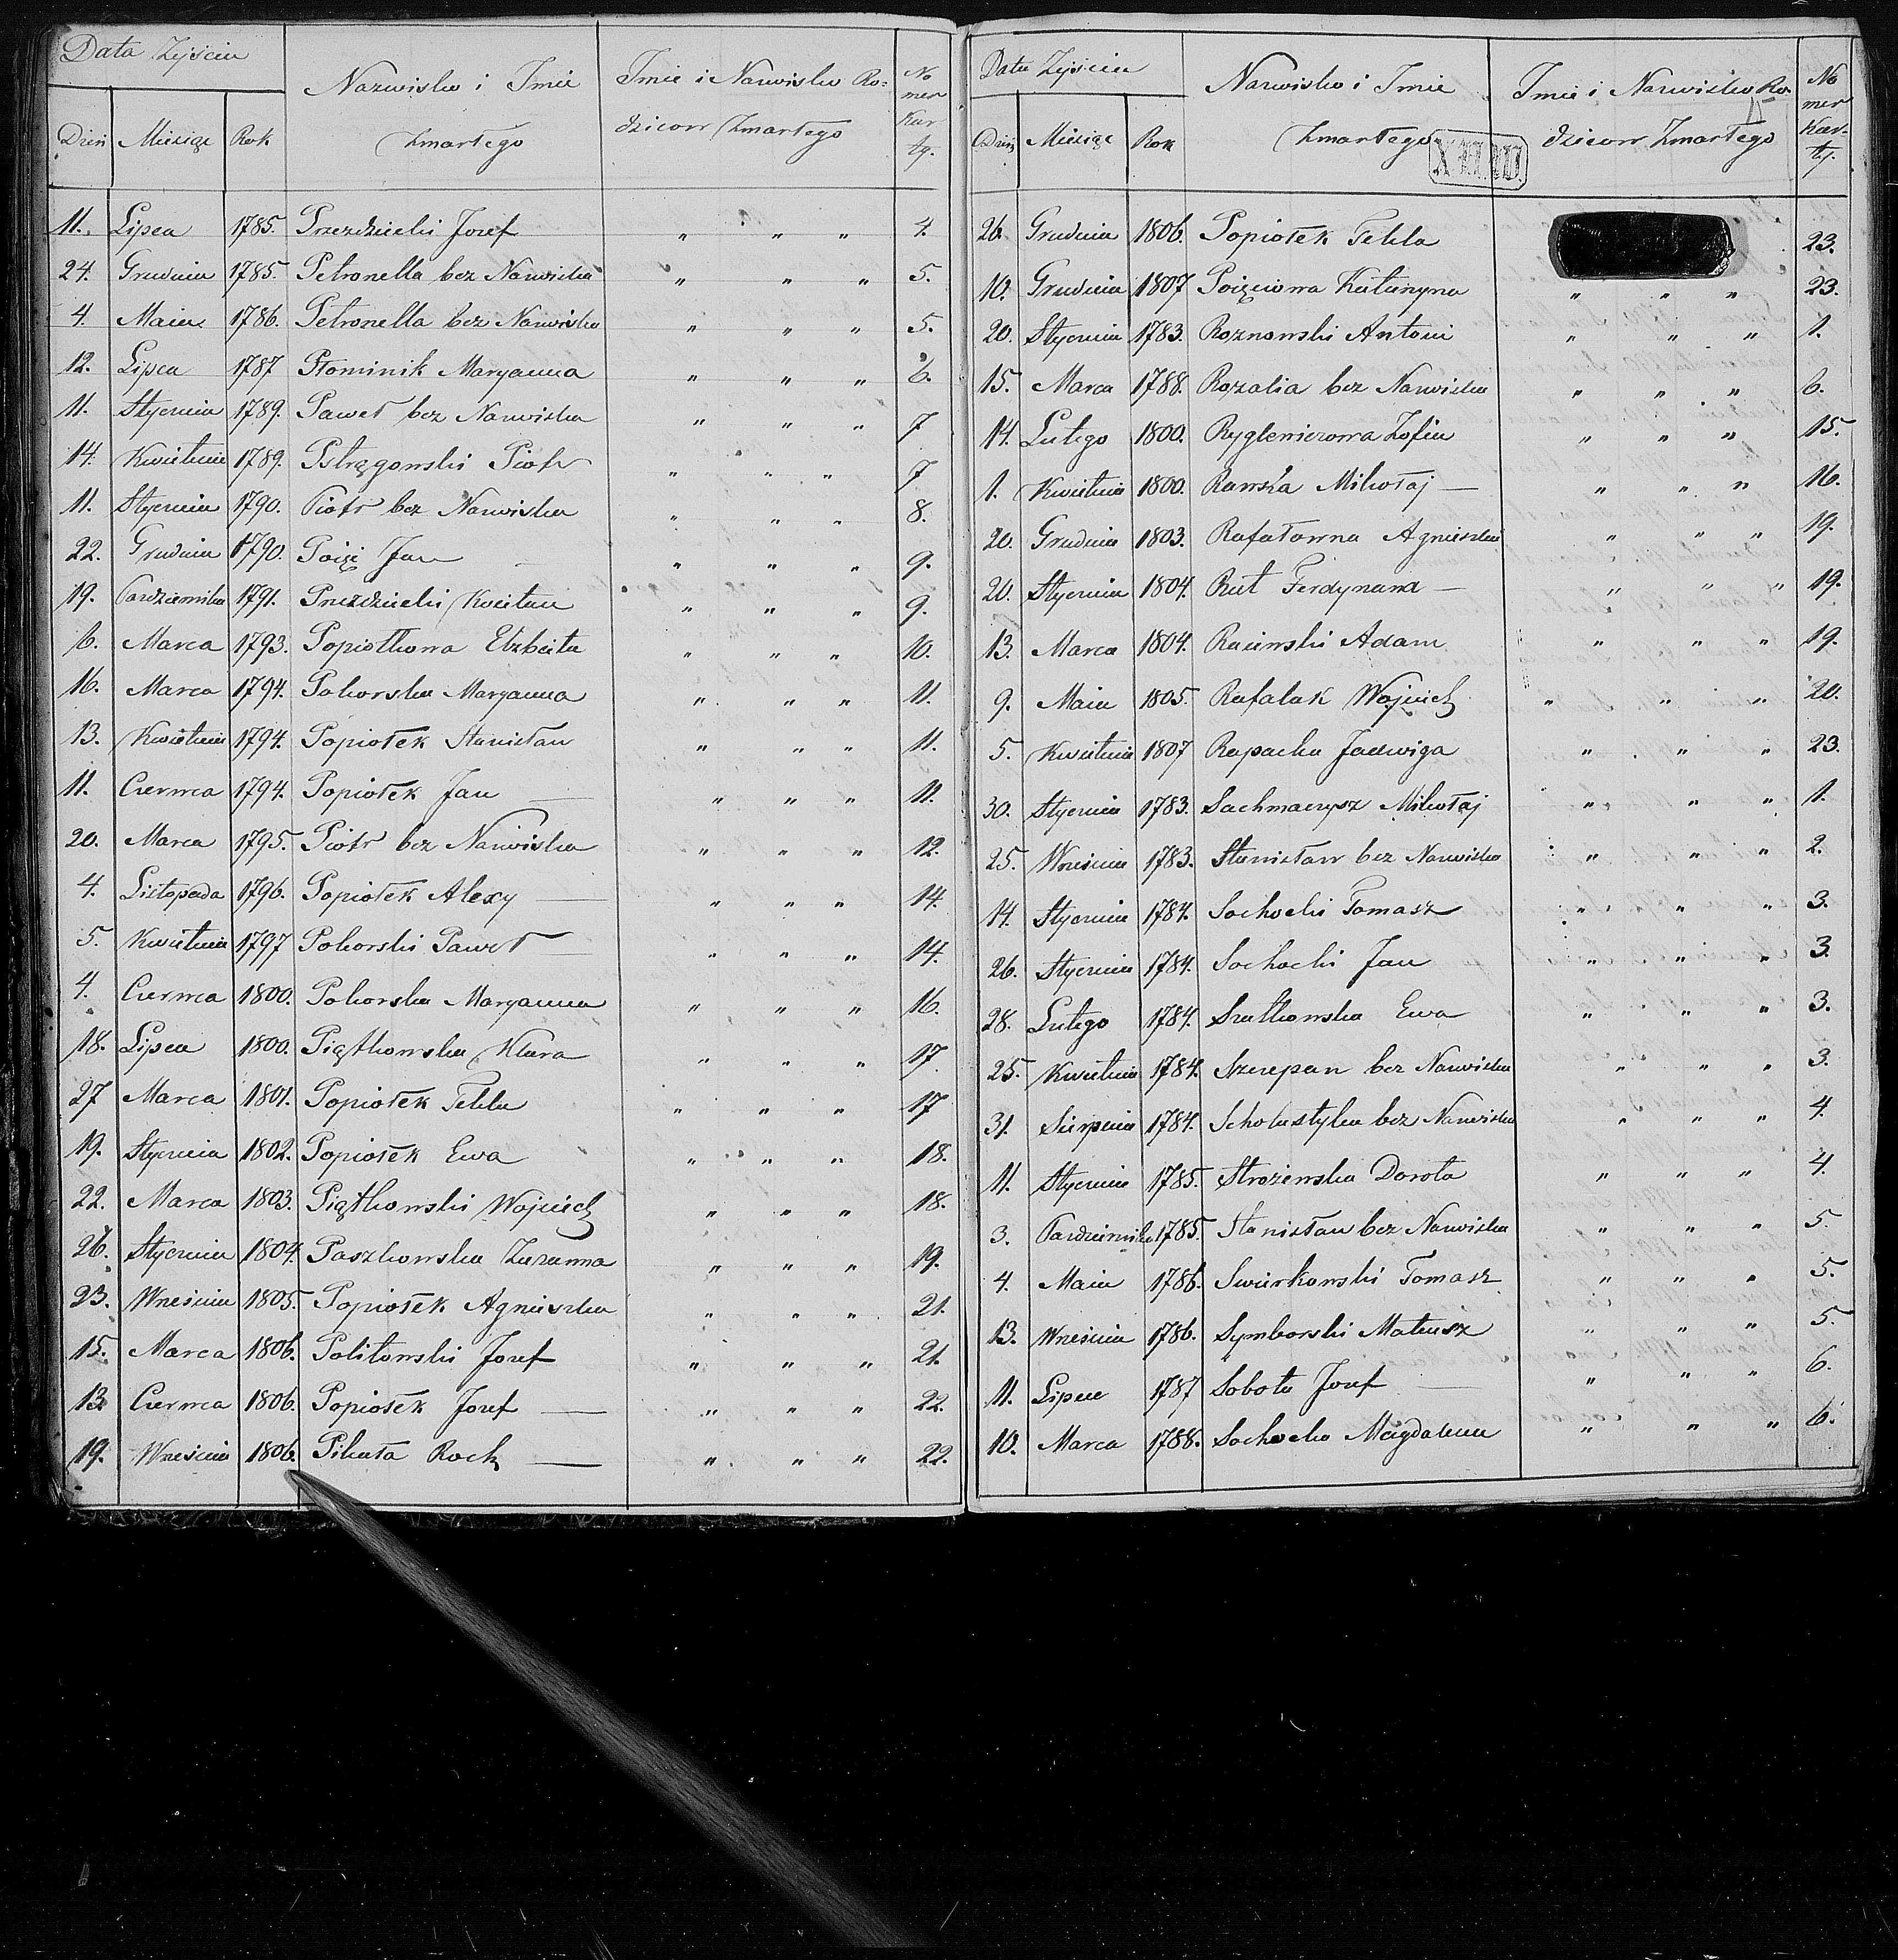 Data Zejścia
Nazwisko i Imie Zmartego
Imie i Nazwisko Rodziców Zmartego
Nomer Karty
Dzień Miesiąc Rok
11. Lipca 1785. Przezdziecki Jozef " " " 4.
24. Grudnia 1785. Petronella bez Nazwiska " " " 5.
4. Maia 1786. Petronella bez Nazwiska " " " 5.
12. Lipca 1787 Płominik Maryanna " " " 6.
11. Stycznia 1789. Paweł bez Nazwiska " " " 7
14. Kwietnia 1789. Pstrągowski Piotr " " " 7
11. Stycznia 1790. Piotr bez Nazwiska " " " 8.
22. Grudnia 1790. Jan " " " 9.
19. Pazdziernika 1791. Przezdziecki Kaietan " " " 9.
6. Marca 1793. Popiołkowa Elzbieta " " " 10.
16. Marca 1794. Pokorska Maryanna " " " 11.
13. Kwietnia 1794. Popiołek Stanisław " " " 11.
11. Czerwca 1794. Popiołek Jan — " " " 11.
20. Marca 1795. Piotr bez Nazwiska " " " 12.
4. Listopada 1796. Popiołek Alexy — " " " 14.
5. Kwietnia 1797 Pokorski Paweł — " " " 14.
4. Czerwca 1800. Pokorska Maryanna " " " 16.
18. Lipca 1800. Piątkowska Klara " " " 17.
27 Marca 1801. Popiołek Tekla " " " 17
19. Stycznia 1802. Popiołek Ewa " " " 18.
22. Marca 1803. Piątkowski Wojciech " " " 18.
26. Stycznia 1804. Paszkowska Zuzanna " " " 19.
23. Września 1805. Popiołek Agnieszka " " " 21.
15. Marca 1806. Politowski Jozef " " " 21.
13 Czerwca 1806. Popiołek Jozef — " " " 22.
19. Września 1806. Pikuła Roch — " " " 22.
Data Zejścia
Nazwisko i Imie Zmartego
Imie i Nazwisko Rodziców Zmartego
Nomer Karty
Dzień Miesiąc Rok
26. Grudnia 1806. Popiołek Tekla 23.
10. Grudnia 1807 Katarzyna " " " 23.
20. Stycznia 1783. Roznowski Antoni " " " 1.
15. Marca 1788. Rozalia bez Nazwiska " " " 6.
14. Lutego 1800. Zofia " " " 15.
1. Kwietnia 1800. Rawska Mikołaj — " " " 16.
20. Grudnia 1803. Rafałowna Agnieszka " " " 19.
20. Stycznia 1804. Rut Ferdynand — " " " 19.
13. Marca 1804. Raciński Adam " " " 19.
9. Maia 1805. Rafalak Wojciech " " " 20.
5. Kwietnia 1807 Rapacka Jadwiga " " " 23.
30. Stycznia 1783. Sachmacrysz Mikołaj " " " 1.
25. Września 1783. Stanisław bez Nazwiska " " " 2.
14. Stycznia 1784. Sochocki Tomasz " " " 3.
26. Stycznia 1784. Sochocki Jan " " " 3.
28. Lutego 1784. Szatkowska Ewa " " " 3.
25. Kwietnia 1784. Szczepan bez Nazwiska " " " 3.
31. Sierpnia 1784. Scholastyka bez Nazwiska " " " 4.
11. Stycznia 1785. Strożewska Dorota " " " 4.
3. Pazdziernika 1785. Stanisław bez Nazwiska " " " 5.
4. Maia 1786. Swierkowski Tomasz " " " 5.
13. Września 1786. Symborski Mateusz " " " 5.
11. Lipca 1787 Sobota Jozef — " " " 6.
10. Marca 1788. Sochocka Magdalena " " " 6.